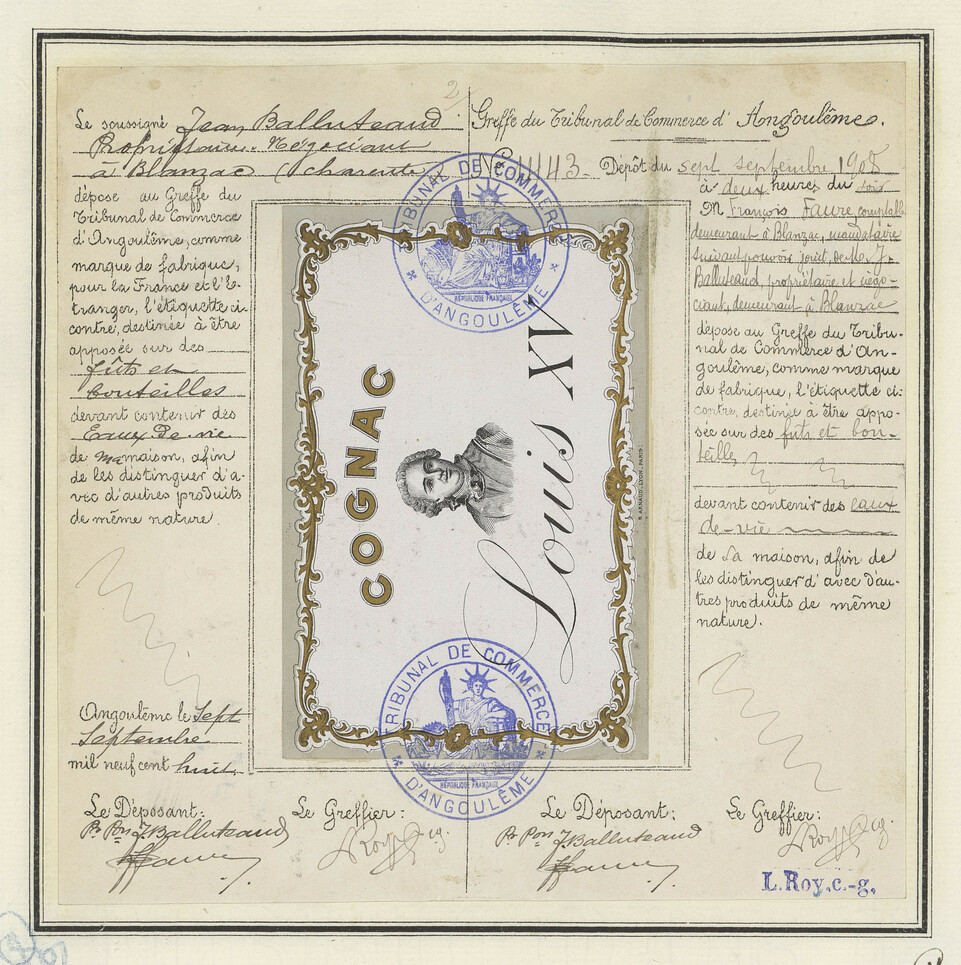 2
Le soussigné Jean Balluteaud
Propriétaire-Négociant
à Blanzac (Charente)
dépose au Greffe du
Tribunal de Commerce
d'Angoulême, comme
marque de fabrique,
pour la France et l'é-
tranger, l'étiquette ci-
contre, destinée à être
apposée sur des
fûts et
bouteilles
devant contenir des
Eaux de vie
de ma maison, afin
de les distinguer d'a-
vec d'autres produits
de même nature.
Angoulême le Sept
Septembre
mil neuf cent huit.
Le Déposant:
Pr Pon J. Balluteaud
Faure
Le Greffier:
L Roy cg.
TRIBUNAL DE COMMERCE
RÉPUBLIQUE FRANÇAISE
D'ANGOULÊME
COGNAC
Louis XV
R. ARNAUD, LYON, PARIS
TRIBUNAL DE COMMERCE
RÉPUBLIQUE FRANÇAISE
D'ANGOULÊME
Greffe du Tribunal de Commerce d'Angoulême.
No 4443 - Dépôt du sept septembre 1908
à deux heures du soir
M François Faure comptable
demeurant à Blanzac, mandataire
suivant pouvoir joint, de M. J.
Balluteaud, propriétaire et négo-
ciant, demeurant à Blanzac
dépose au Greffe du Tribu-
nal de Commerce d'An-
goulême, comme marque
de fabrique, l'étiquette ci-
contre, destinée à être appo-
sée sur des fûts et bou-
teilles
devant contenir des eaux
de-vie
de sa maison, afin de
les distinguer d'avec d'au-
tres produits de même
nature.
Le Déposant:
Pr Pon J. Balluteaud
Faure
Le Greffier:
L Roy cg.
L. Roy, c.-g.